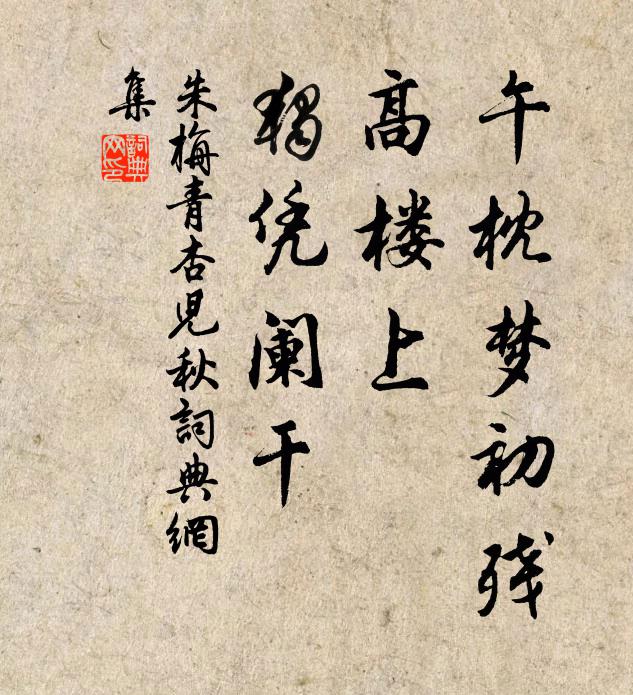 午枕梦初残
高楼上
独凭阑干
朱梅青杏儿秋詞典網
集
詞典
网印